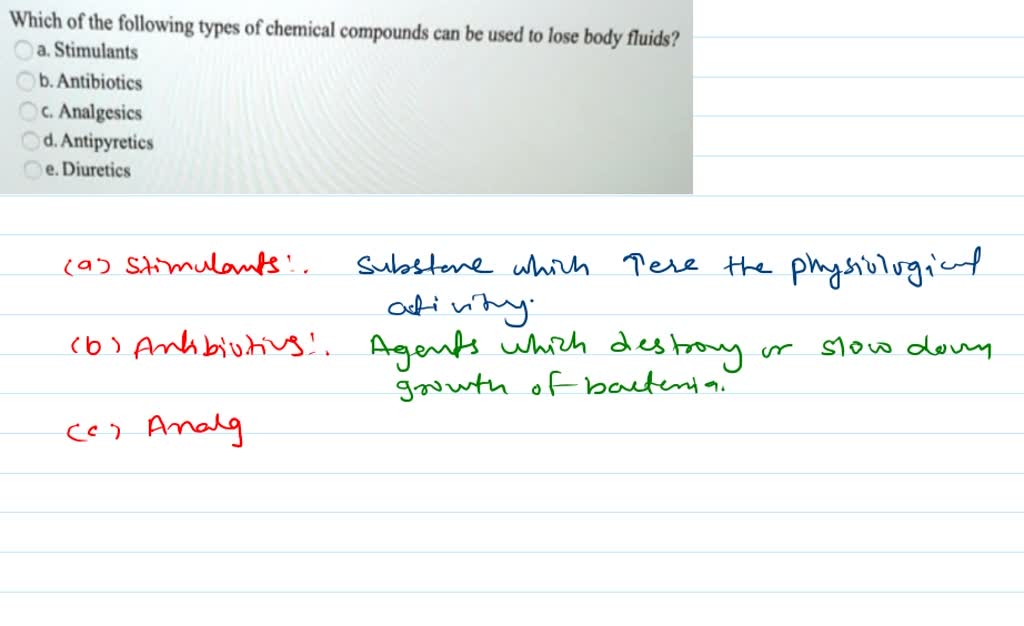 Which of the following types of chemical compounds can be used to lose body fluids?
a. Stimulants
b. Antibiotics
c. Analgesics
d. Antipyretics
e. Diuretics
(a) Stimulants:. Substane which the physiological
activity.
(b) Antibiotics:. Agents which destroy or slow down
growth of bacteria.
(c) Analg